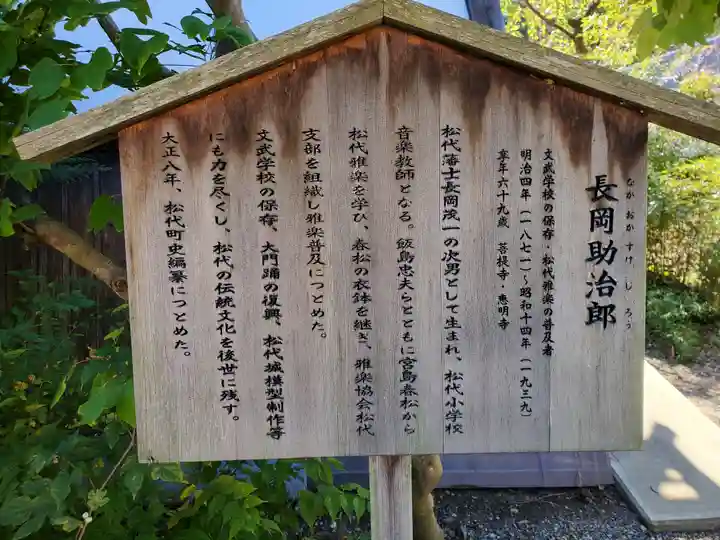 長岡助治郎
なが おか すけ じ ろう
文武学校の保存・松代雅楽の普及者
明治四年(一八七一)~昭和十四年(一九三九)
享年六十九歳 菩提寺・恵明寺
松代藩士長岡茂一の次男として生まれ、松代小学校
音楽教師となる。飯島忠夫らとともに宮島春松から
松代雅楽を学び、春松の衣鉢を継ぎ、雅楽協会松代
支部を組織し雅楽普及につとめた。
文武学校の保存、大門踊の復興、松代城模型制作等
にも力を尽くし、松代の伝統文化を後世に残す。
大正八年、松代町史編纂につとめた。